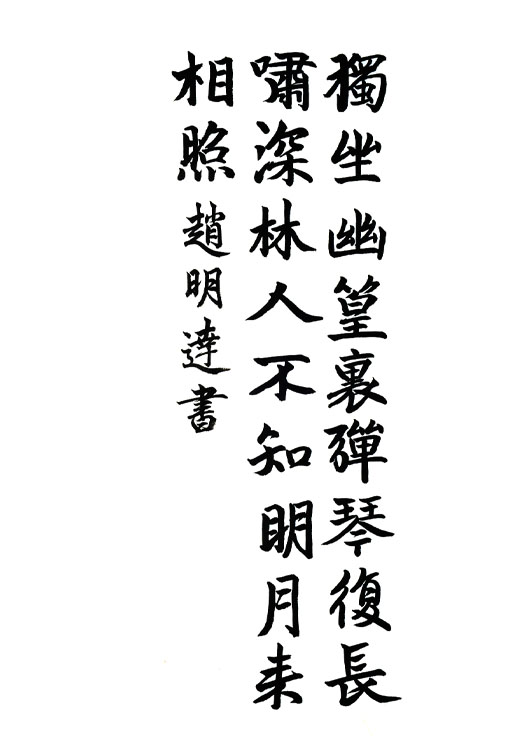 獨坐幽篁裏彈琴復長
嘯深林人不知明月来
相照趙明達書